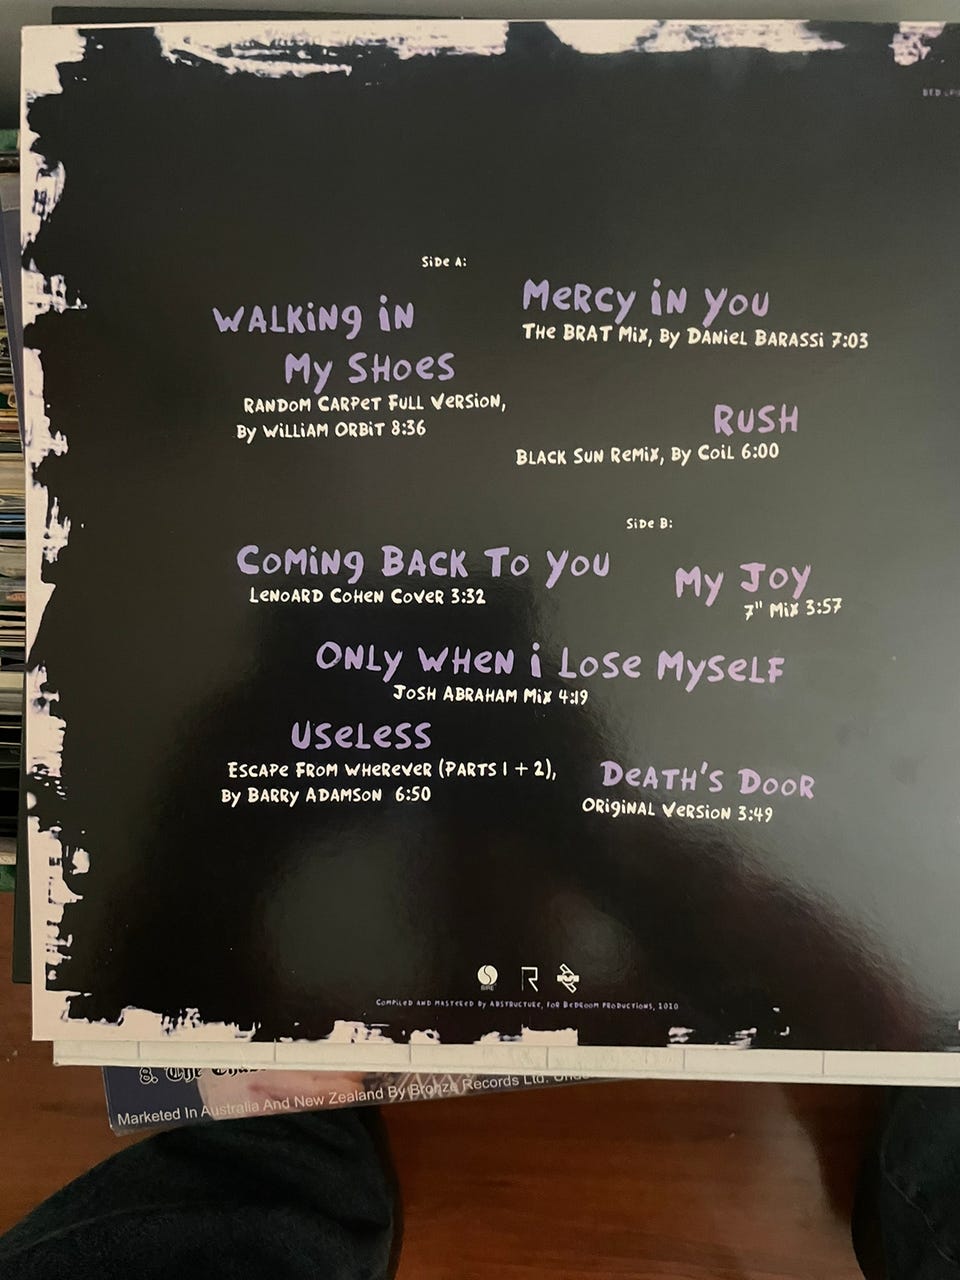 Side A:
WALKING IN
MY SHOES
RANDOM CARPET FULL VERSION,
BY WILLIAM ORBIT 8:36
MERCY IN YOU
THE BRAT MIX, BY DANIEL BARASSI 7:03
RUSH
BLACK SUN REMIX, BY COIL 6:00
Side B:
COMING BACK TO YOU
LENOARD COHEN COVER 3:32
MY JOY
7" MIX 3:57
ONLY WHEN I LOSE MYSELF
JOSH ABRAHAM MIX 4:19
USELESS
ESCAPE FROM WHEREVER (PARTS 1 + 2),
BY BARRY ADAMSON 6:50
DEATH'S DOOR
ORIGINAL VERSION 3:49
SIRE
R
COMPILED AND MASTERED BY ABSTRUCTURE, FOR BEDROOM PRODUCTIONS, 2020
8. The
Marketed In Australia And New Zealand By Bronze Records Ltd.